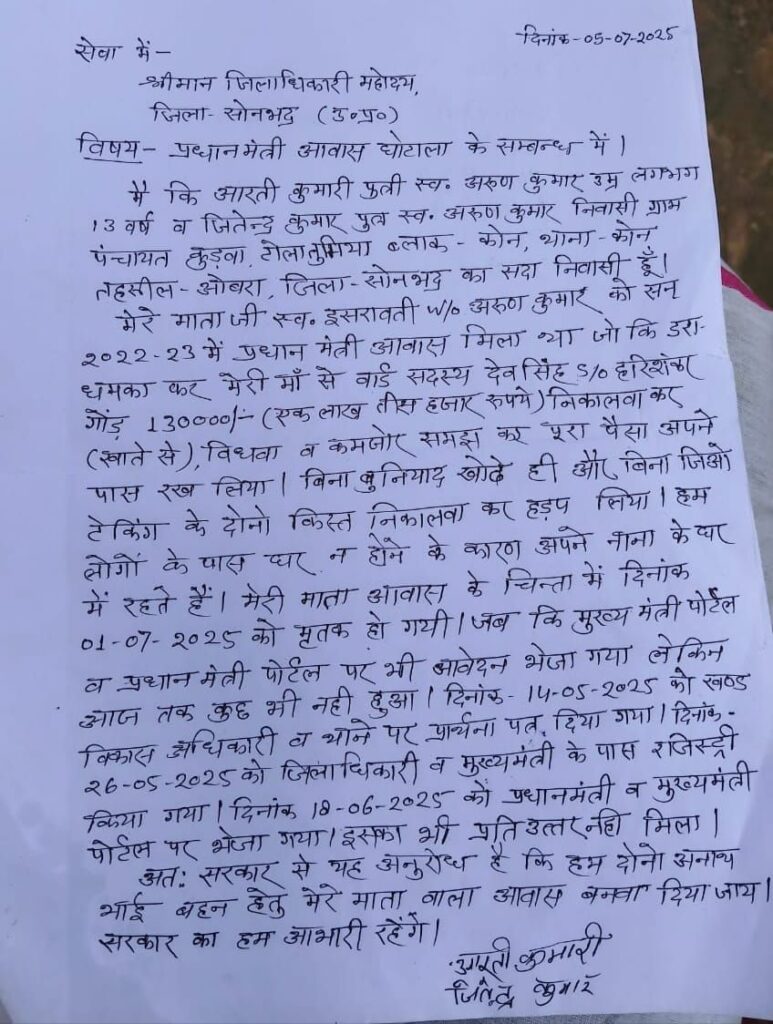 दिनांक-05-07-2025
सेवा में-
श्रीमान जिलाधिकारी महोदय,
जिला- सोनभद्र (उ०प्र०)
विषय- प्रधानमंत्री आवास घोटाला के सम्बन्ध में।
मै कि आरती कुमारी पुत्री स्व. अरुण कुमार उम्र लगभग
13 वर्ष व जितेन्द्र कुमार पुत्र स्व. अरुण कुमार निवासी ग्राम
पंचायत कुड़वा, टोला ब्लाक- कोन, थाना-कोन
तहसील-ओबरा, जिला-सोनभद्र का सदा निवासी हूँ।
मेरे माता जी स्व. इसरावती W/o अरुण कुमार को सन्
2022-23 में प्रधान मंत्री आवास मिला था जो कि डरा-
धमका कर मेरी माँ से वार्ड सदस्य देवसिंह S/o हरिशंकर
गोंड़ 130000/- (एक लाख तीस हजार रुपये) निकालवा कर
(खाते से), विधवा व कमजोर समझ कर पूरा पैसा अपने
पास रख लिया। बिना बुनियाद खोदे ही और बिना जिओ
टेकिंग के दोनो किस्त निकालवा कर हड़प लिया। हम
लोगों के पास घर न होने के कारण अपने नाना के घर
में रहते हैं। मेरी माता आवास के चिन्ता में दिनांक
01-07-2025 को मृतक हो गयी। जब कि मुख्य मंत्री पोर्टल
व प्रधान मंत्री पोर्टल पर भी आवेदन भेजा गया लेकिन
आज तक कुछ भी नही हुआ। दिनांक- 14-05-2025 को खण्ड
विकास अधिकारी व थाने पर प्रार्थना पत्र दिया गया। दिनांक-
26-05-2025 को जिलाधिकारी व मुख्यमंत्री के पास रजिस्ट्री
किया गया। दिनांक 18-06-2025 को प्रधानमंत्री व मुख्यमंत्री
पोर्टल पर भेजा गया। इसका भी प्रतिउत्तर नही मिला।
अत: सरकार से यह अनुरोध है कि हम दोनो अनाथ
भाई बहन हेतु मेरे माता वाला आवास बनवा दिया जाय।
सरकार का हम आभारी रहेंगे।
आरती कुमारी
जितेन्द्र कुमार